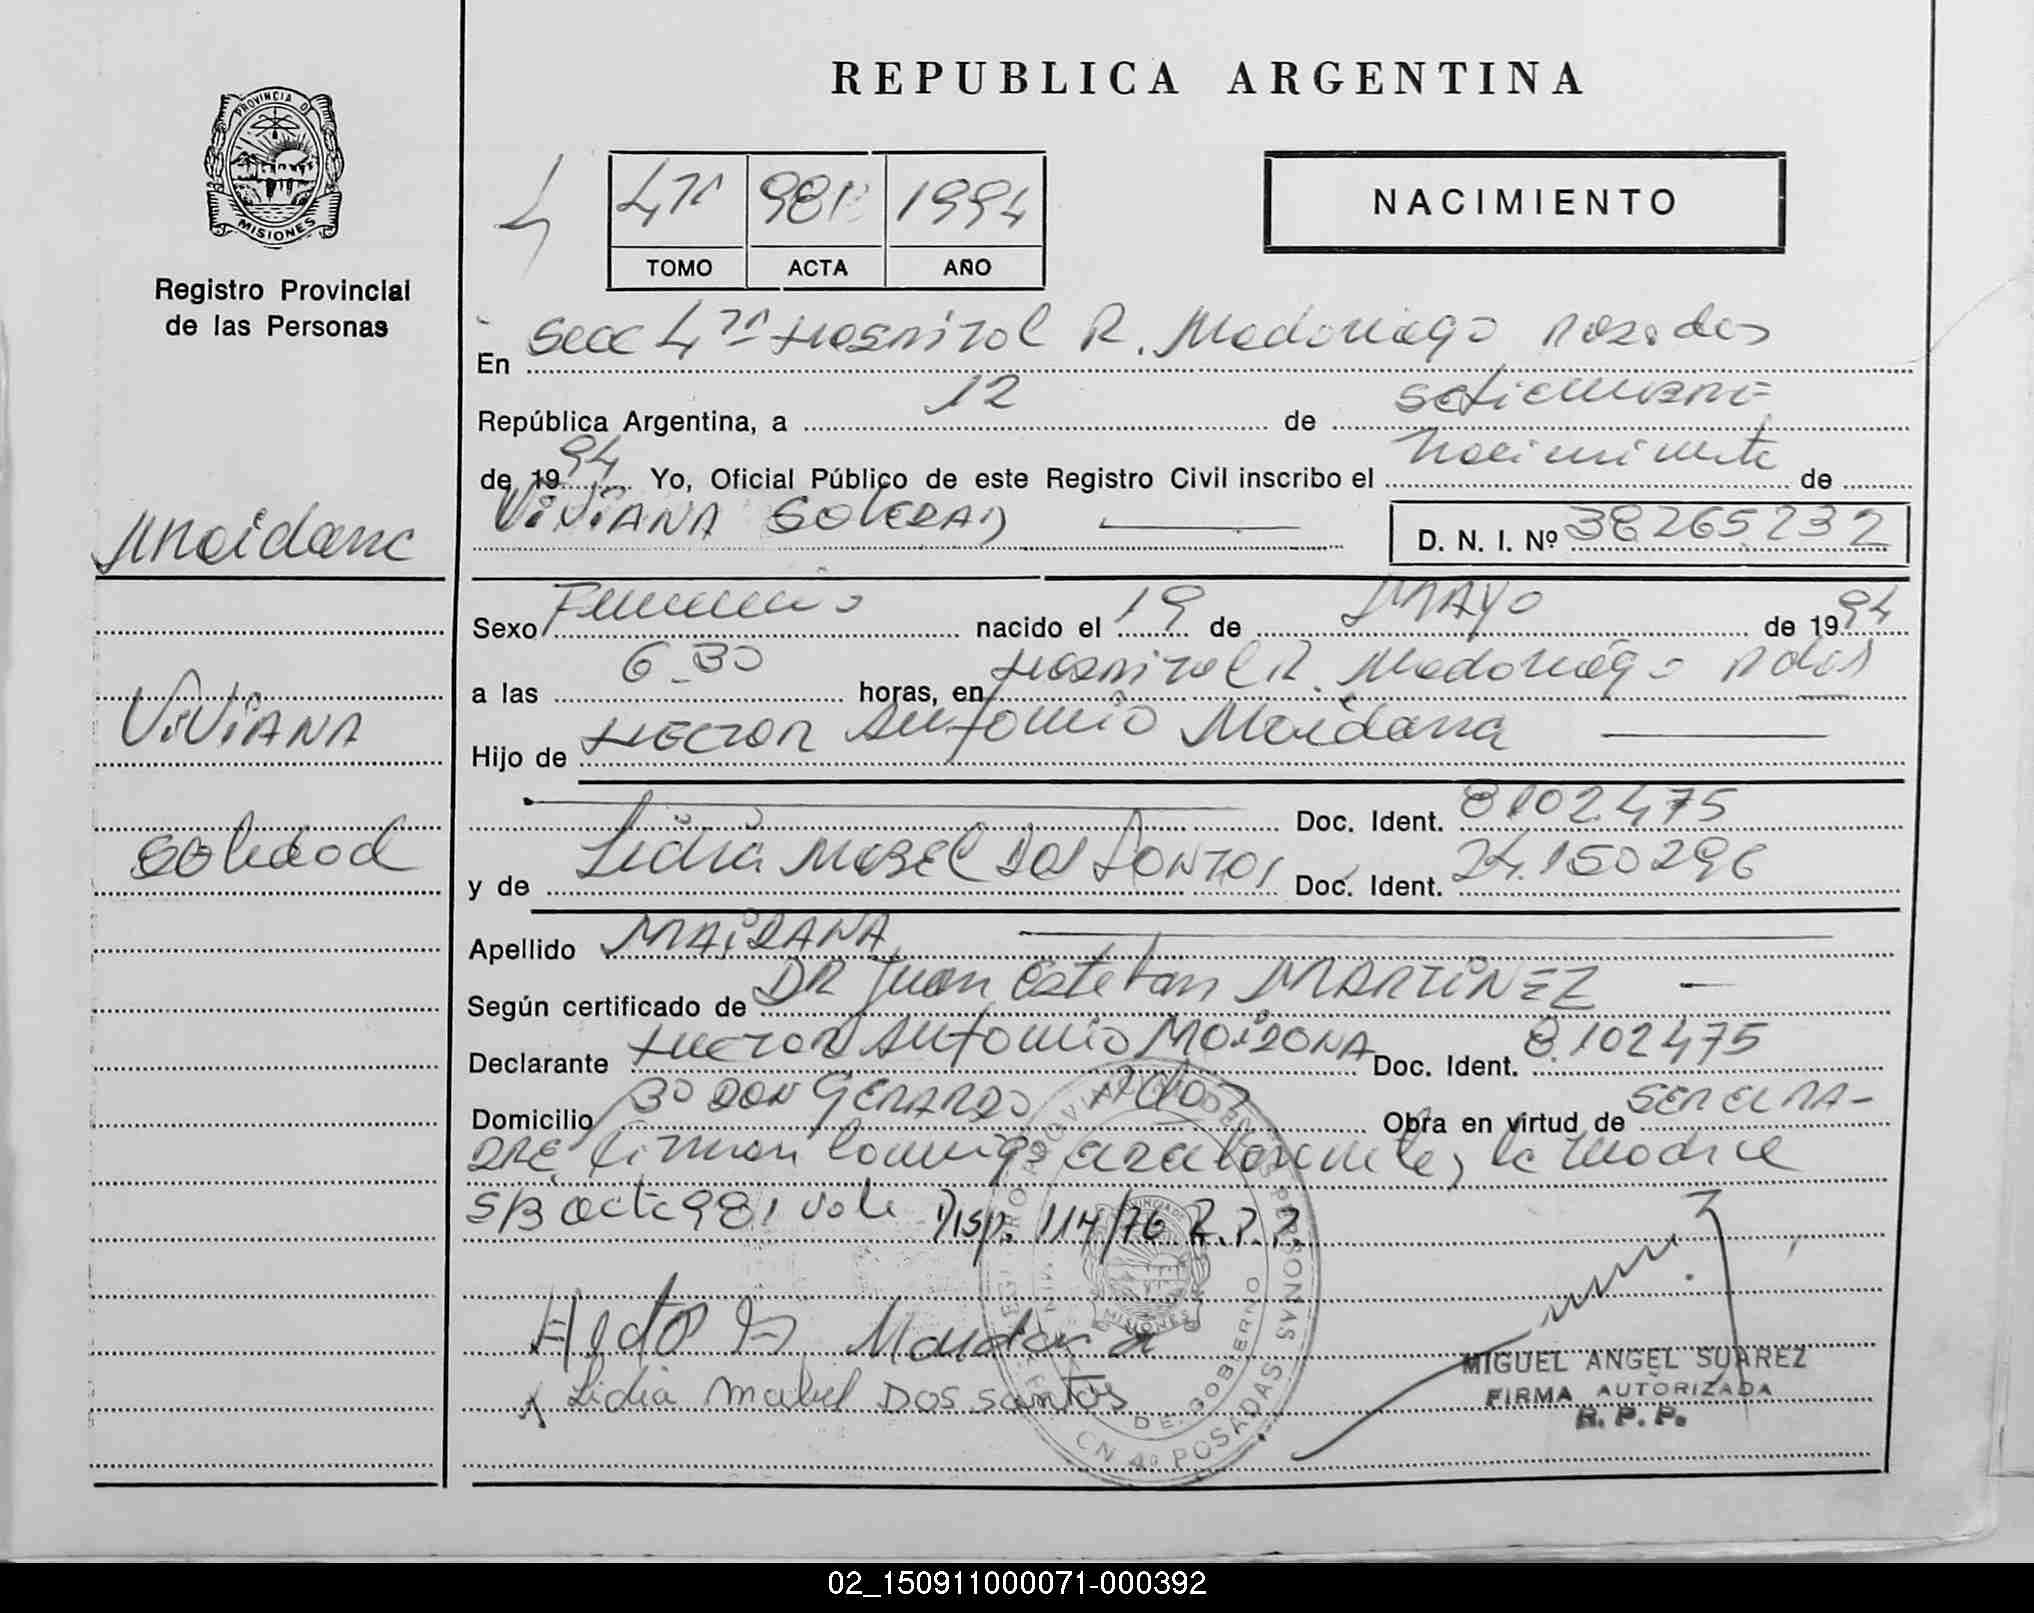 REPUBLICA ARGENTINA
PROVINCIA DE
MISIONES
Registro Provincial
de las Personas
4
4ta 981 1994
TOMO ACTA AÑO
NACIMIENTO
En Secc 4ta Hospital R. Madariaga Posadas
República Argentina, a 12 de Setiembre
de 1994 Yo, Oficial Público de este Registro Civil inscribo el Nacimiento de
VIVIANA SOLEDAD
D. N. I. Nº 38265232
Maidana
Viviana
Soledad
Sexo Femenino nacido el 19 de MAYO de 1994
a las 6_30 horas, en Hospital R. Madariaga Pdas
Hijo de HECTOR Antonio Maidana
Doc. Ident. 8102475
y de Lidia MABEL DOS SANTOS Doc. Ident. 24.150296
Apellido MAIDANA
Según certificado de DR Juan Esteban MARTINEZ
Declarante Hector Antonio MAIDANA Doc. Ident. 8.102475
Domicilio Bo DON GERARDO Pdas Obra en virtud de SER EL PA-
DRE firman conmigo el la madre
S/B acta 981 vale Disp. 114/76 R.P.P.
Maidana
Lidia Mabel Dos Santos
MIGUEL ANGEL SUAREZ
FIRMA AUTORIZADA
R. P. P.
DE GOBIERNO
POSADAS
02_150911000071-000392